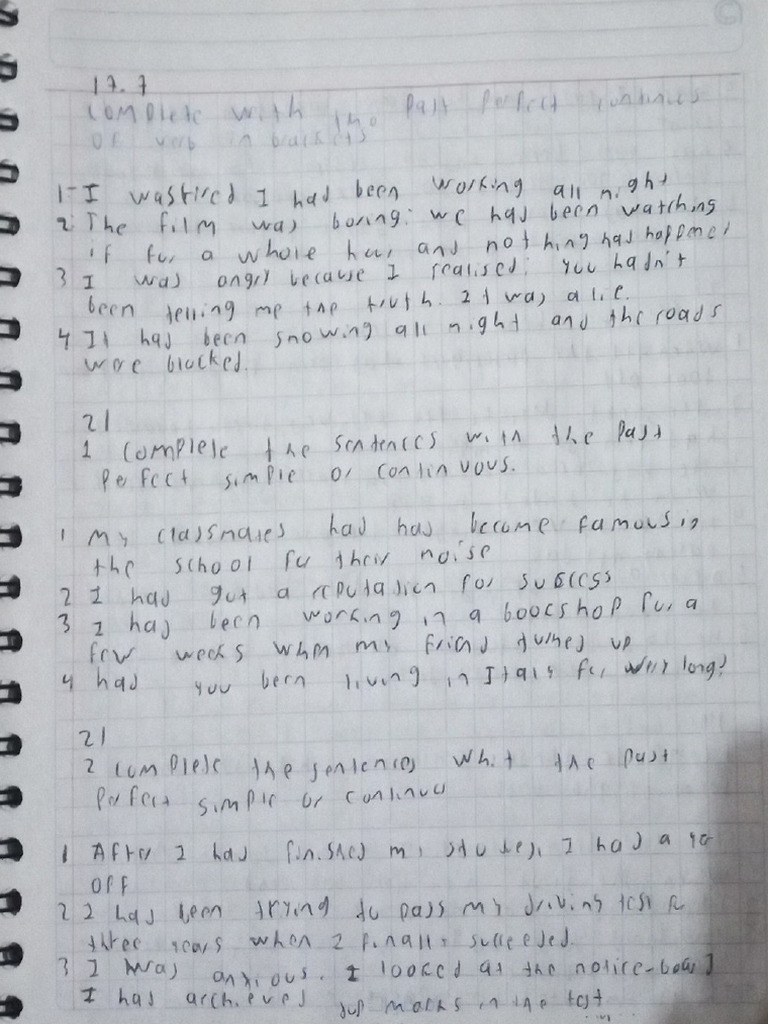 17.7
complete with the past perfect continues
of verb in brackets
1- I was tired I had been working all night
2- The film was boring: we had been watching
it for a whole hour and nothing had happened
3 I was angry because I realised: you hadn't
been telling me the truth. It was a lie.
4 It had been snowing all night and the roads
were blocked.
21
1 complete the sentences with the past
perfect simple or continuous.
1 My classmates had had become famous in
the school for their noise
2 I had got a reputation for success
3 I had been working in a boocshop for a
few weeks when my friend turned up
4 had you been living in Italy for very long?
21
2 complete the sentences whit the past
perfect simple or continuo
1 After I had finished my studies, I had a
off
2 I had been trying to pass my driving test
three years when I finally succeeded.
3 I was anxious. I looced at the notice-board
I had archieved top marks in the test